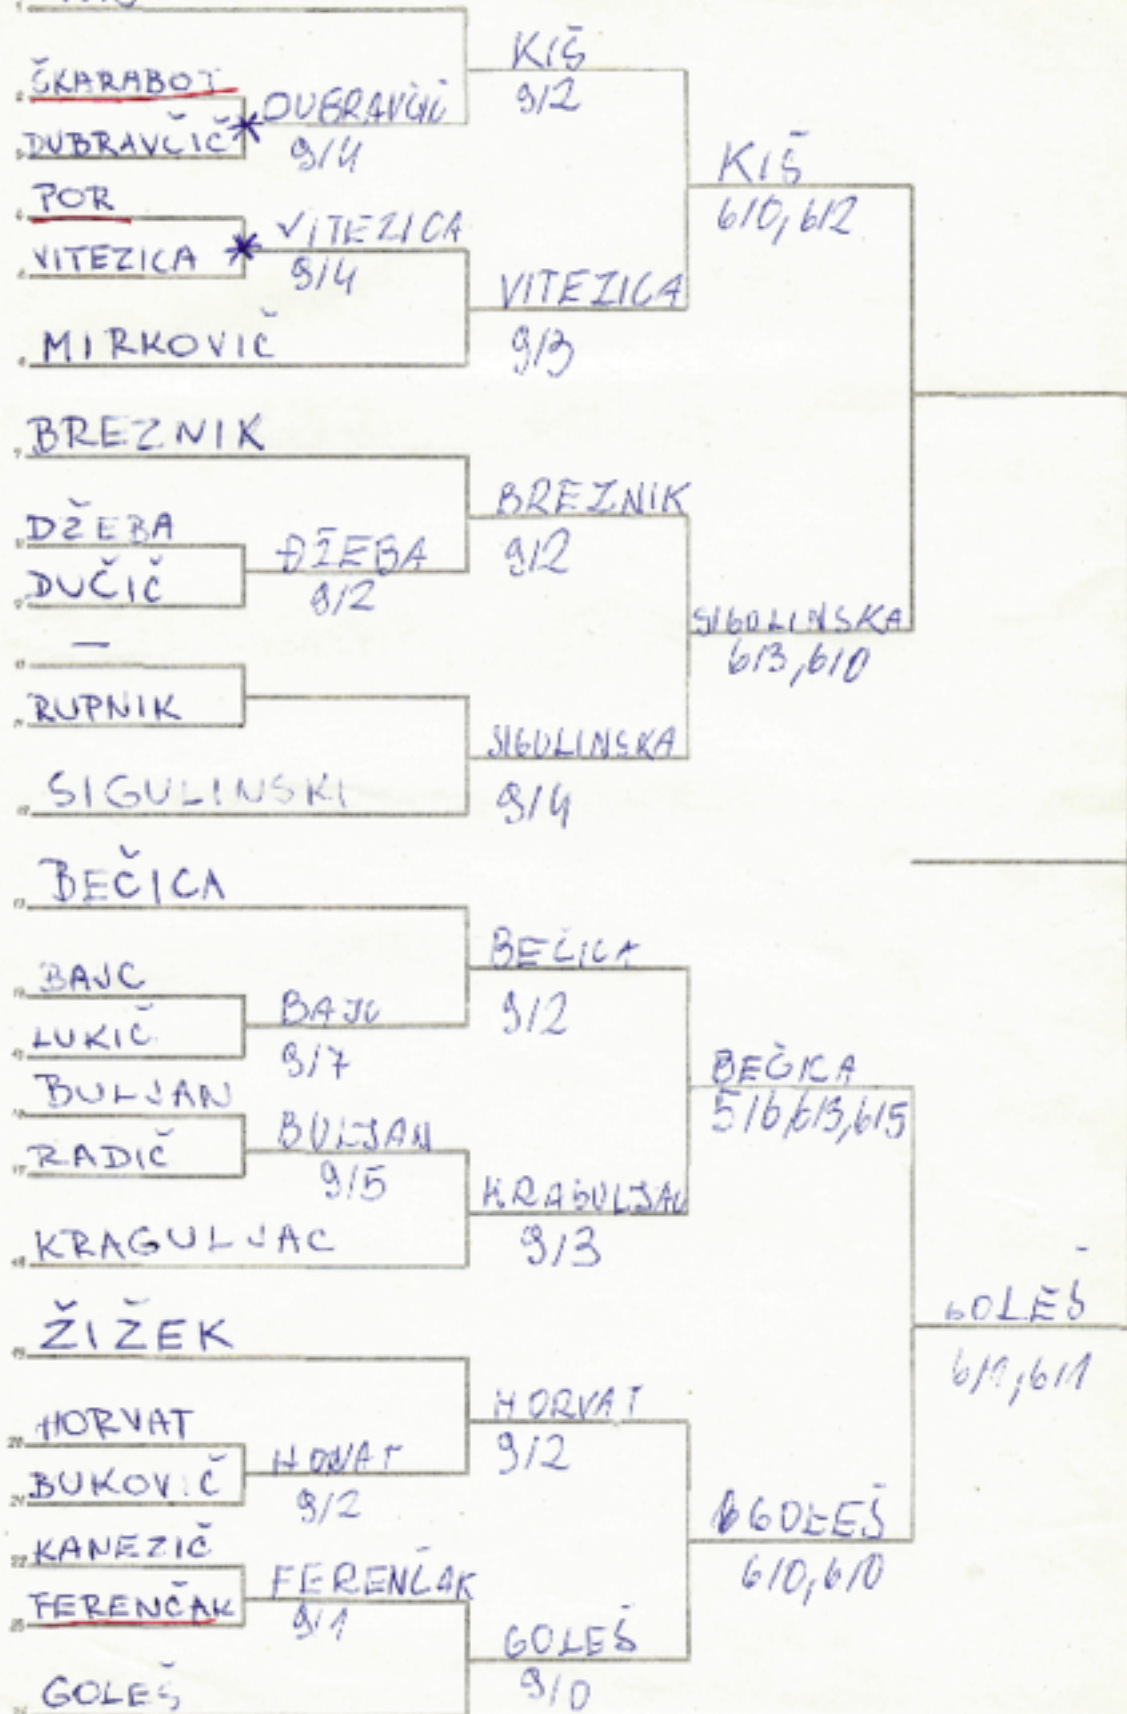 ŠKARABOT
DUBRAVČIČ
POR
VITEZICA
MIRKOVIČ
BREZNIK
DŽEBA
DUČIČ
—
RUPNIK
SIGULINSKI
BEČICA
BAJC
LUKIČ
BULJAN
RADIČ
KRAGULJAC
ŽIŽEK
HORVAT
BUKOVIČ
KANEZIČ
FERENČAK
GOLEŠ
DUBRAVČIČ
9/4
VITEZICA
9/4
ĐŽEBA
9/2
BAJC
9/7
BULJAN
9/5
HOVAT
9/2
FERENČAK
9/1
KIŠ
9/2
VITEZICA
9/3
BREZNIK
9/2
SIGULINSKA
9/4
BEČICA
9/2
KRAGULJAC
9/3
HORVAT
9/2
GOLEŠ
9/0
KIŠ
6/0, 6/2
SIGULINSKA
6/3, 6/0
BEČICA
5/6, 6/3, 6/5
GOLEŠ
6/0, 6/0
GOLEŠ
6/1, 6/1